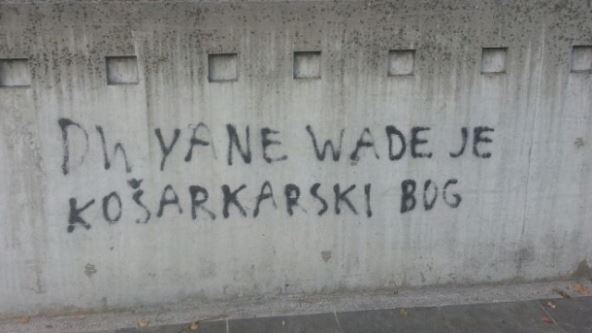 DWYANE WADE JE
KOŠARKARSKI BOG